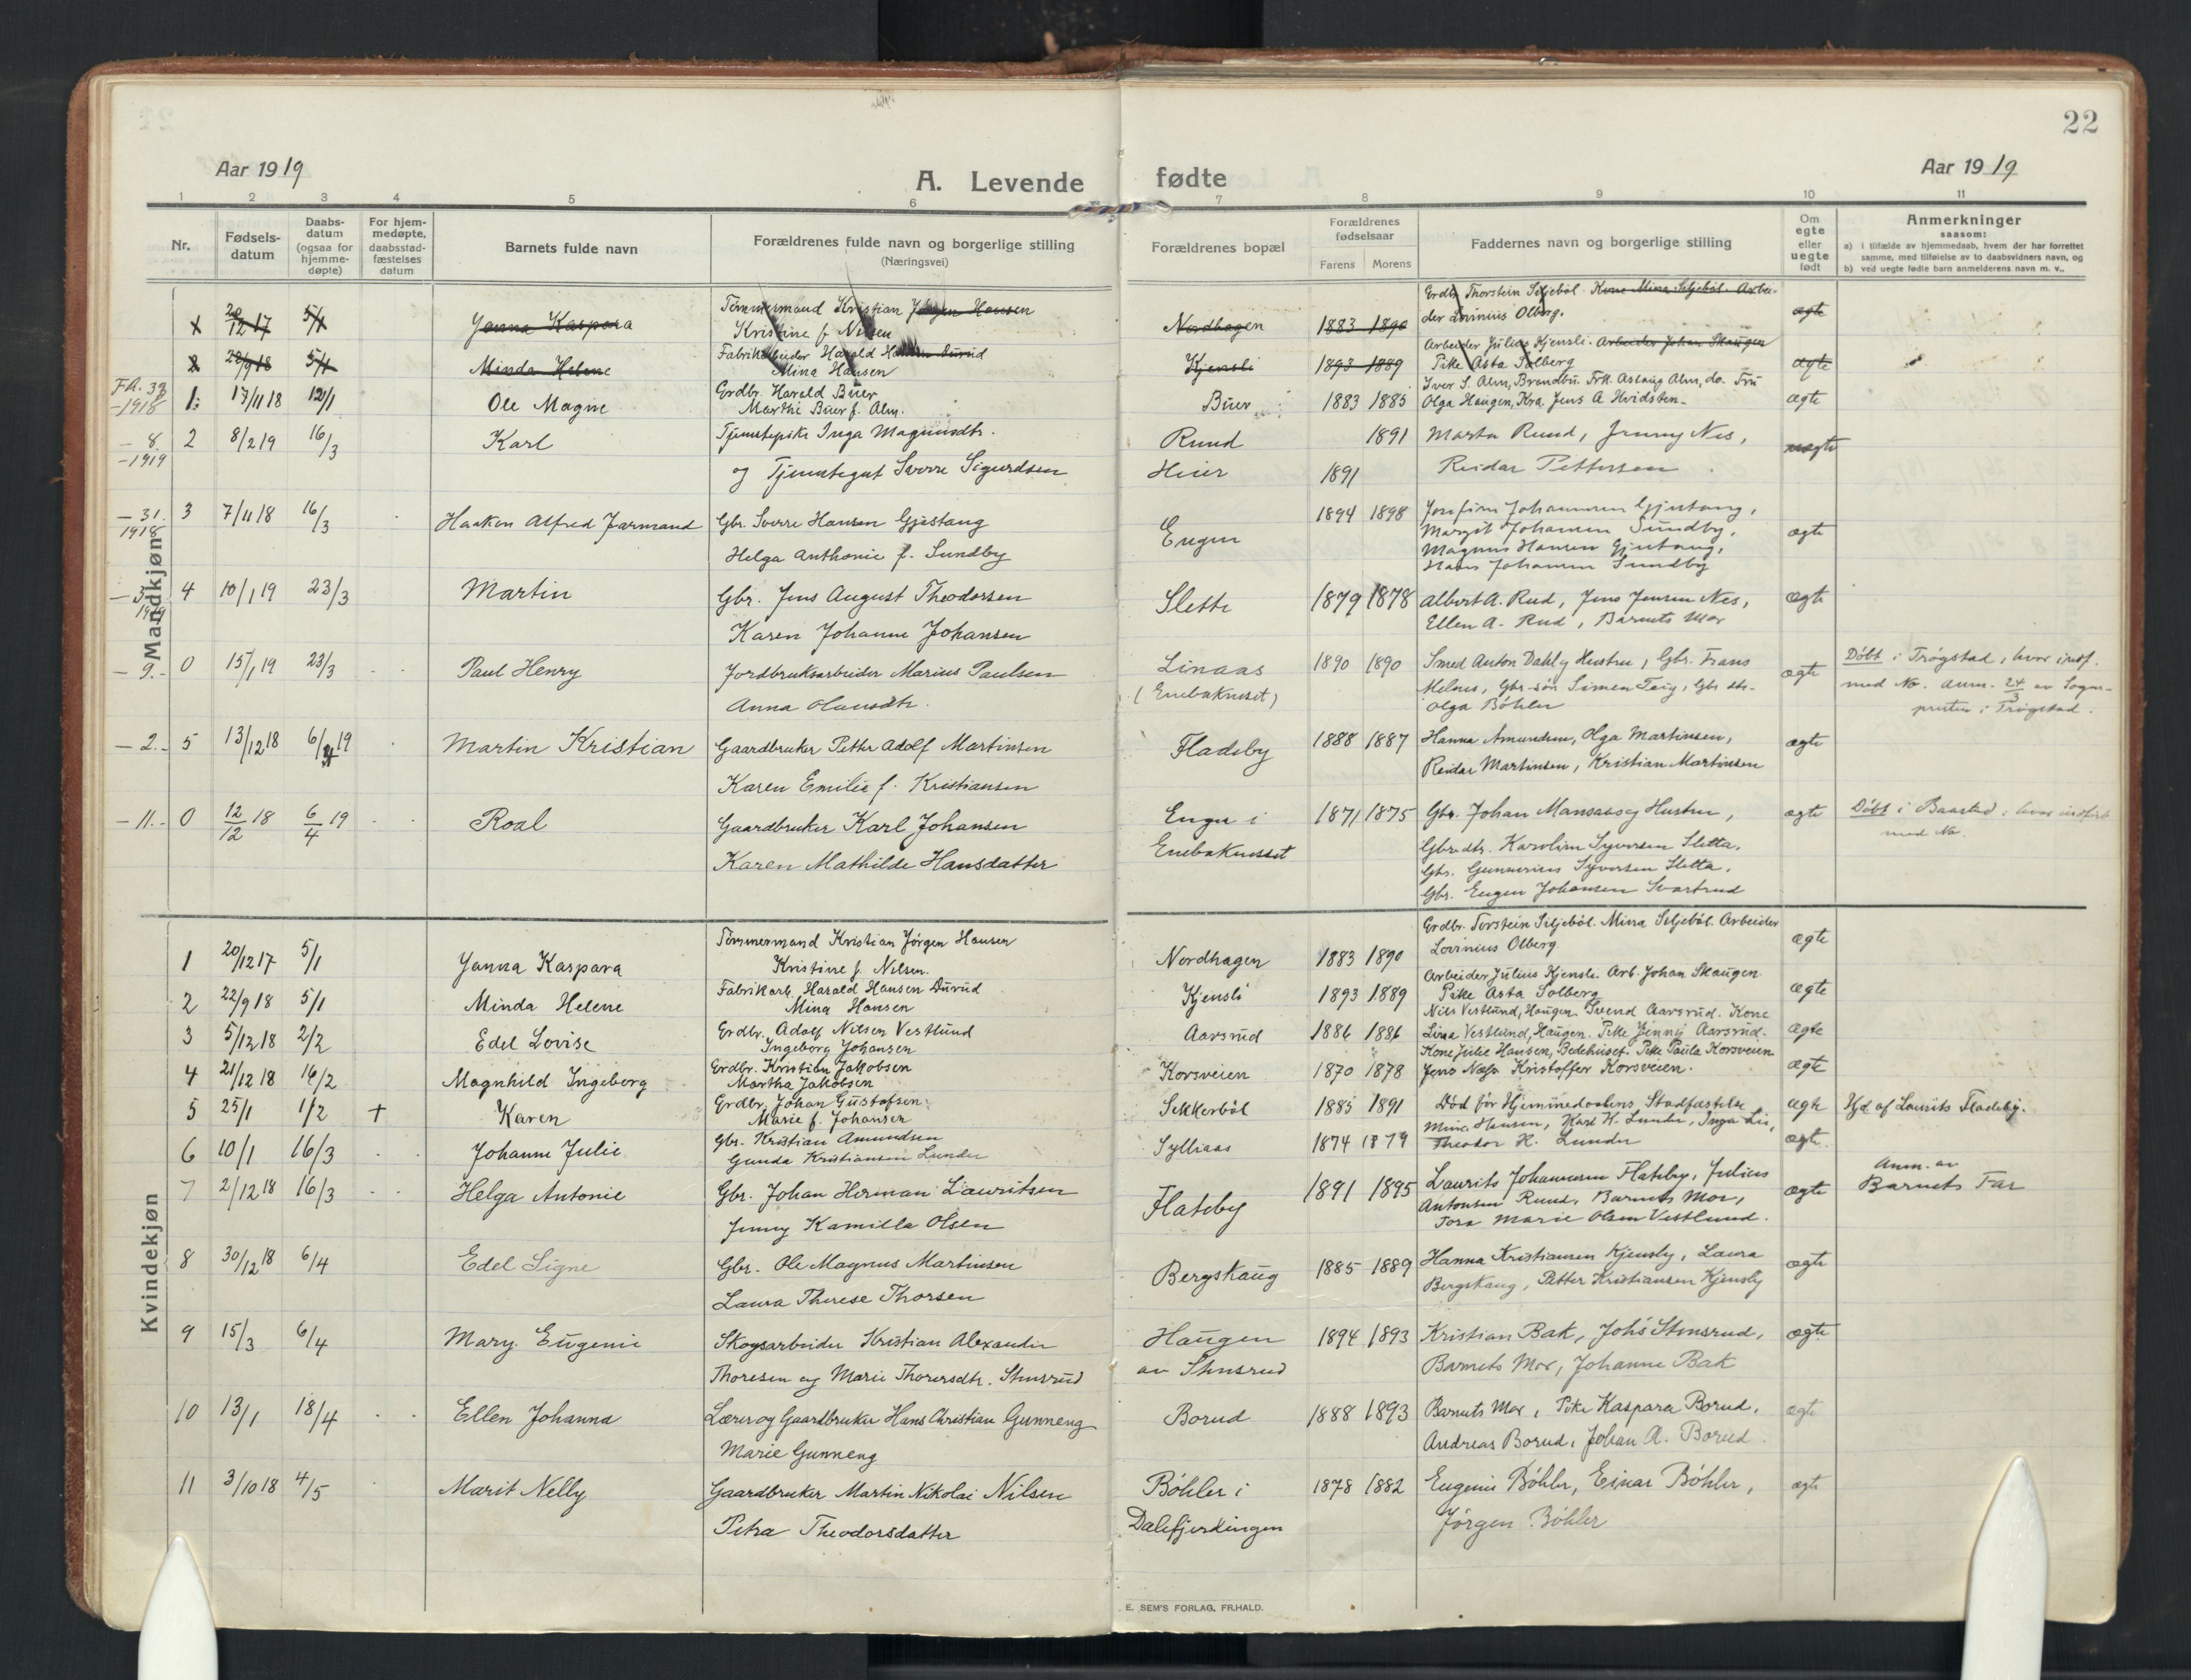 22
Aar 1919
A. Levende fødte
Aar 1919
1 2 3 4 5 6 7 8 9 10 11
Nr.
Fødsels-
datum
Daabs-
datum
(ogsaa for
hjemme-
døpte)
For hjem-
medøpte,
daabsstad-
fæstelses
datum
Barnets fulde navn
Forældrenes fulde navn og borgerlige stilling
(Næringsvei)
Forældrenes bopæl
Forældrenes
fødselsaar
Farens Morens
Faddernes navn og borgerlige stilling
Om
egte
eller
uegte
født
Anmerkninger
saasom:
a) i tilfælde av hjemmedaab, hvem der har forrettet
samme, med tilføielse av to daabsvidners navn, og
b) ved uegte fødte barn anmelderens navn m. v..
Mandkjøn
20/12 17 5/1 Yanna Kaspara Tömmermand Kristian Jørgen Hansen Nordhagen 1883 1890 Grdbr. Thorstein Siljeböl. Kone Mina Siljeböl. Arbei- ægte
Kristine f. Nilsen der Lovinius Olberg.
22/9 18 5/1 Minda Helene Fabrikarbeider Harald Hansen Durud Kjensli 1893 1889 Arbeider Julius Kjensli. Arbeider Johan Skaugen ægte
Mina Hansen Pike Asta Solberg
FA. 32 -1918 1. 17/11 18 12/1 Ole Magne Grdbr. Harald Buer Buer 1883 1885 Iver S. Alm, Brandbu. Frk. Aslaug Alm, do. Fru ægte
Marthe Buer f. Alm. Olga Haugen, Kra. Jens A Hvidsten.
- 8. -1919 2 8/2 19 16/3 Karl Tjenestepike Inga Magnusdtr. Ruud 1891 Marta Ruud, Jenny Nes, uægte
og Tjenestegut Sverre Sigurdsen Heier 1891 Reidar Pettersen.
- 31. 1918 3 7/11 18 16/3 Haakon Alfred Jarmand Gbr. Sverre Hansen Gjestang Engen 1894 1898 Josefine Johannesen Gjestang, ægte
Helga Anthonie f. Sundby Margit Johansen Sundby,
Magnus Hansen Gjestang,
Hans Johansen Sundby
4 10/1 19 23/3 Martin Gbr. Jens August Theodorsen Slette 1879 1878 Albert A. Rud, Jens Jensen Nes, ægte
Karen Johanne Johansen Ellen A. Rud, Barnets Mor
- 9.- 0 15/1 19 23/3 Paul Henry Jordbruksarbeider Marius Paulsen Linaas 1890 1890 Smed Anton Dahl og Hustru, Gbr. Frans ægte Døbt i Trøgstad, hvor indf.
Anna Olausdtr. (Enebakneset) Melnes, Gbr-søn Simen Teig, Gbr dtr. med No. Anm. 24/3 av Sogne-
Olga Bøhler presten i Trøgstad.
- 2.- 5 13/12 18 6/4 19 Martin Kristian Gaardbruker Petter Adolf Martinsen Fladeby 1888 1887 Hanna Amundsen, Olga Martinsen, ægte
Karen Emilie f. Kristiansen Reidar Martinsen, Kristian Martinsen
- 11.- 0 12/12 18 6/4 19 Roal Gaardbruker Karl Johansen Enger i 1871 1875 Gbr. Johan Mansaas og Hustru, ægte Døbt i Baastad, hvor indført
Karen Mathilde Hansdatter Enebakneset Gbrdtr. Karoline Syversen Sletta, med No.
Gbr. Gunnerius Syversen Sletta.
Gbr. Eugen Johansen Svartrud
Kvindekjøn
1 20/12 17 5/1 Yanna Kaspara Tömmermand Kristian Jörgen Hansen Nordhagen 1883 1890 Grdbr. Torstein Siljeböl. Mina Siljeböl. Arbeider ægte
Kristine f. Nilsen. Lovinius Olberg
2 22/9 18 5/1 Minda Helene Fabrikarb. Harald Hansen Durud Kjensli 1893 1889 Arbeider Julius Kjensli. Arb. Johan Skaugen. ægte
Mina Hansen Pike Asta Solberg
3 5/12 18 2/2 Edel Lovise Grdbr. Adolf Nilsen Vestlund Aarsrud 1886 1886 Nils Vestlund, Haugen. Svend Aarsrud. Kone ægte
Ingeborg Johansen Lina Vestlund, Haugen. Pike Jenny Aarsrud.
4 21/12 18 16/2 Magnhild Ingeborg Grdbr. Kristian Jakobsen Korsveien 1870 1878 Kone Julie Hansen, Bedehuset. Pike Paula Korsveien ægte
Martha Jakobsen Jens Næss Kristoffer Korsveien.
5 25/1 1/2 + Karen Grdbr. Johan Gustafsen. Sekkerböl 1885 1891 Död för Hjemmedaabens Stadfæstelse ægte Hjd. af Laurits Fladeby.
Marie f. Johansen
6 10/1 16/3 Johanne Julie Gbr. Kristian Amundsen Sylliaas 1874 1879 Mina Hansen, Karl H. Lunder, Inga Lie, ægte.
Gunda Kristiansen Lunder Theodor H. Lunder
7 2/12 18 16/3 Helga Antonie Gbr. Johan Herman Lauritsen Flateby 1891 1895 Laurits Johannesen Flateby, Julius ægte Anm. av
Jenny Kamilla Olsen Antonsen Ruud, Barnets Mor, Barnets Far
Tora Marie Olsen Vestlund.
8 30/12 18 6/4 Edel Signe Gbr. Ole Magnus Martinsen Bergskaug 1885 1889 Hanna Kristiansen Kjensby, Laura ægte
Laura Therese Thorsen Bergskaug, Petter Kristiansen Kjensby
9 15/3 6/4 Mary Eugenie Skogsarbeider Kristian Alexander Haugen 1894 1893 Kristian Bak, Johs Stensrud, ægte
Thoresen og Marie Thorersdtr. Stensrud av Stensrud Barnets Mor, Johanne Bak
10 13/1 18/4 Ellen Johanna Lærer og Gaardbruker Hans Christian Gunneng Borud 1888 1893 Barnets Mor, Pike Kaspara Borud, ægte
Marie Gunneng Andreas Borud, Johan A. Borud.
11 3/10 18 4/5 Marit Nelly Gaardbruker Martin Nikolai Nilsen Bøhler i 1878 1882 Eugenie Bøhler, Einar Bøhler, ægte
Petra Theodorsdatter Dalefjerdingen Jørgen Bøhler
E. SEM'S FORLAG, FR.HALD.